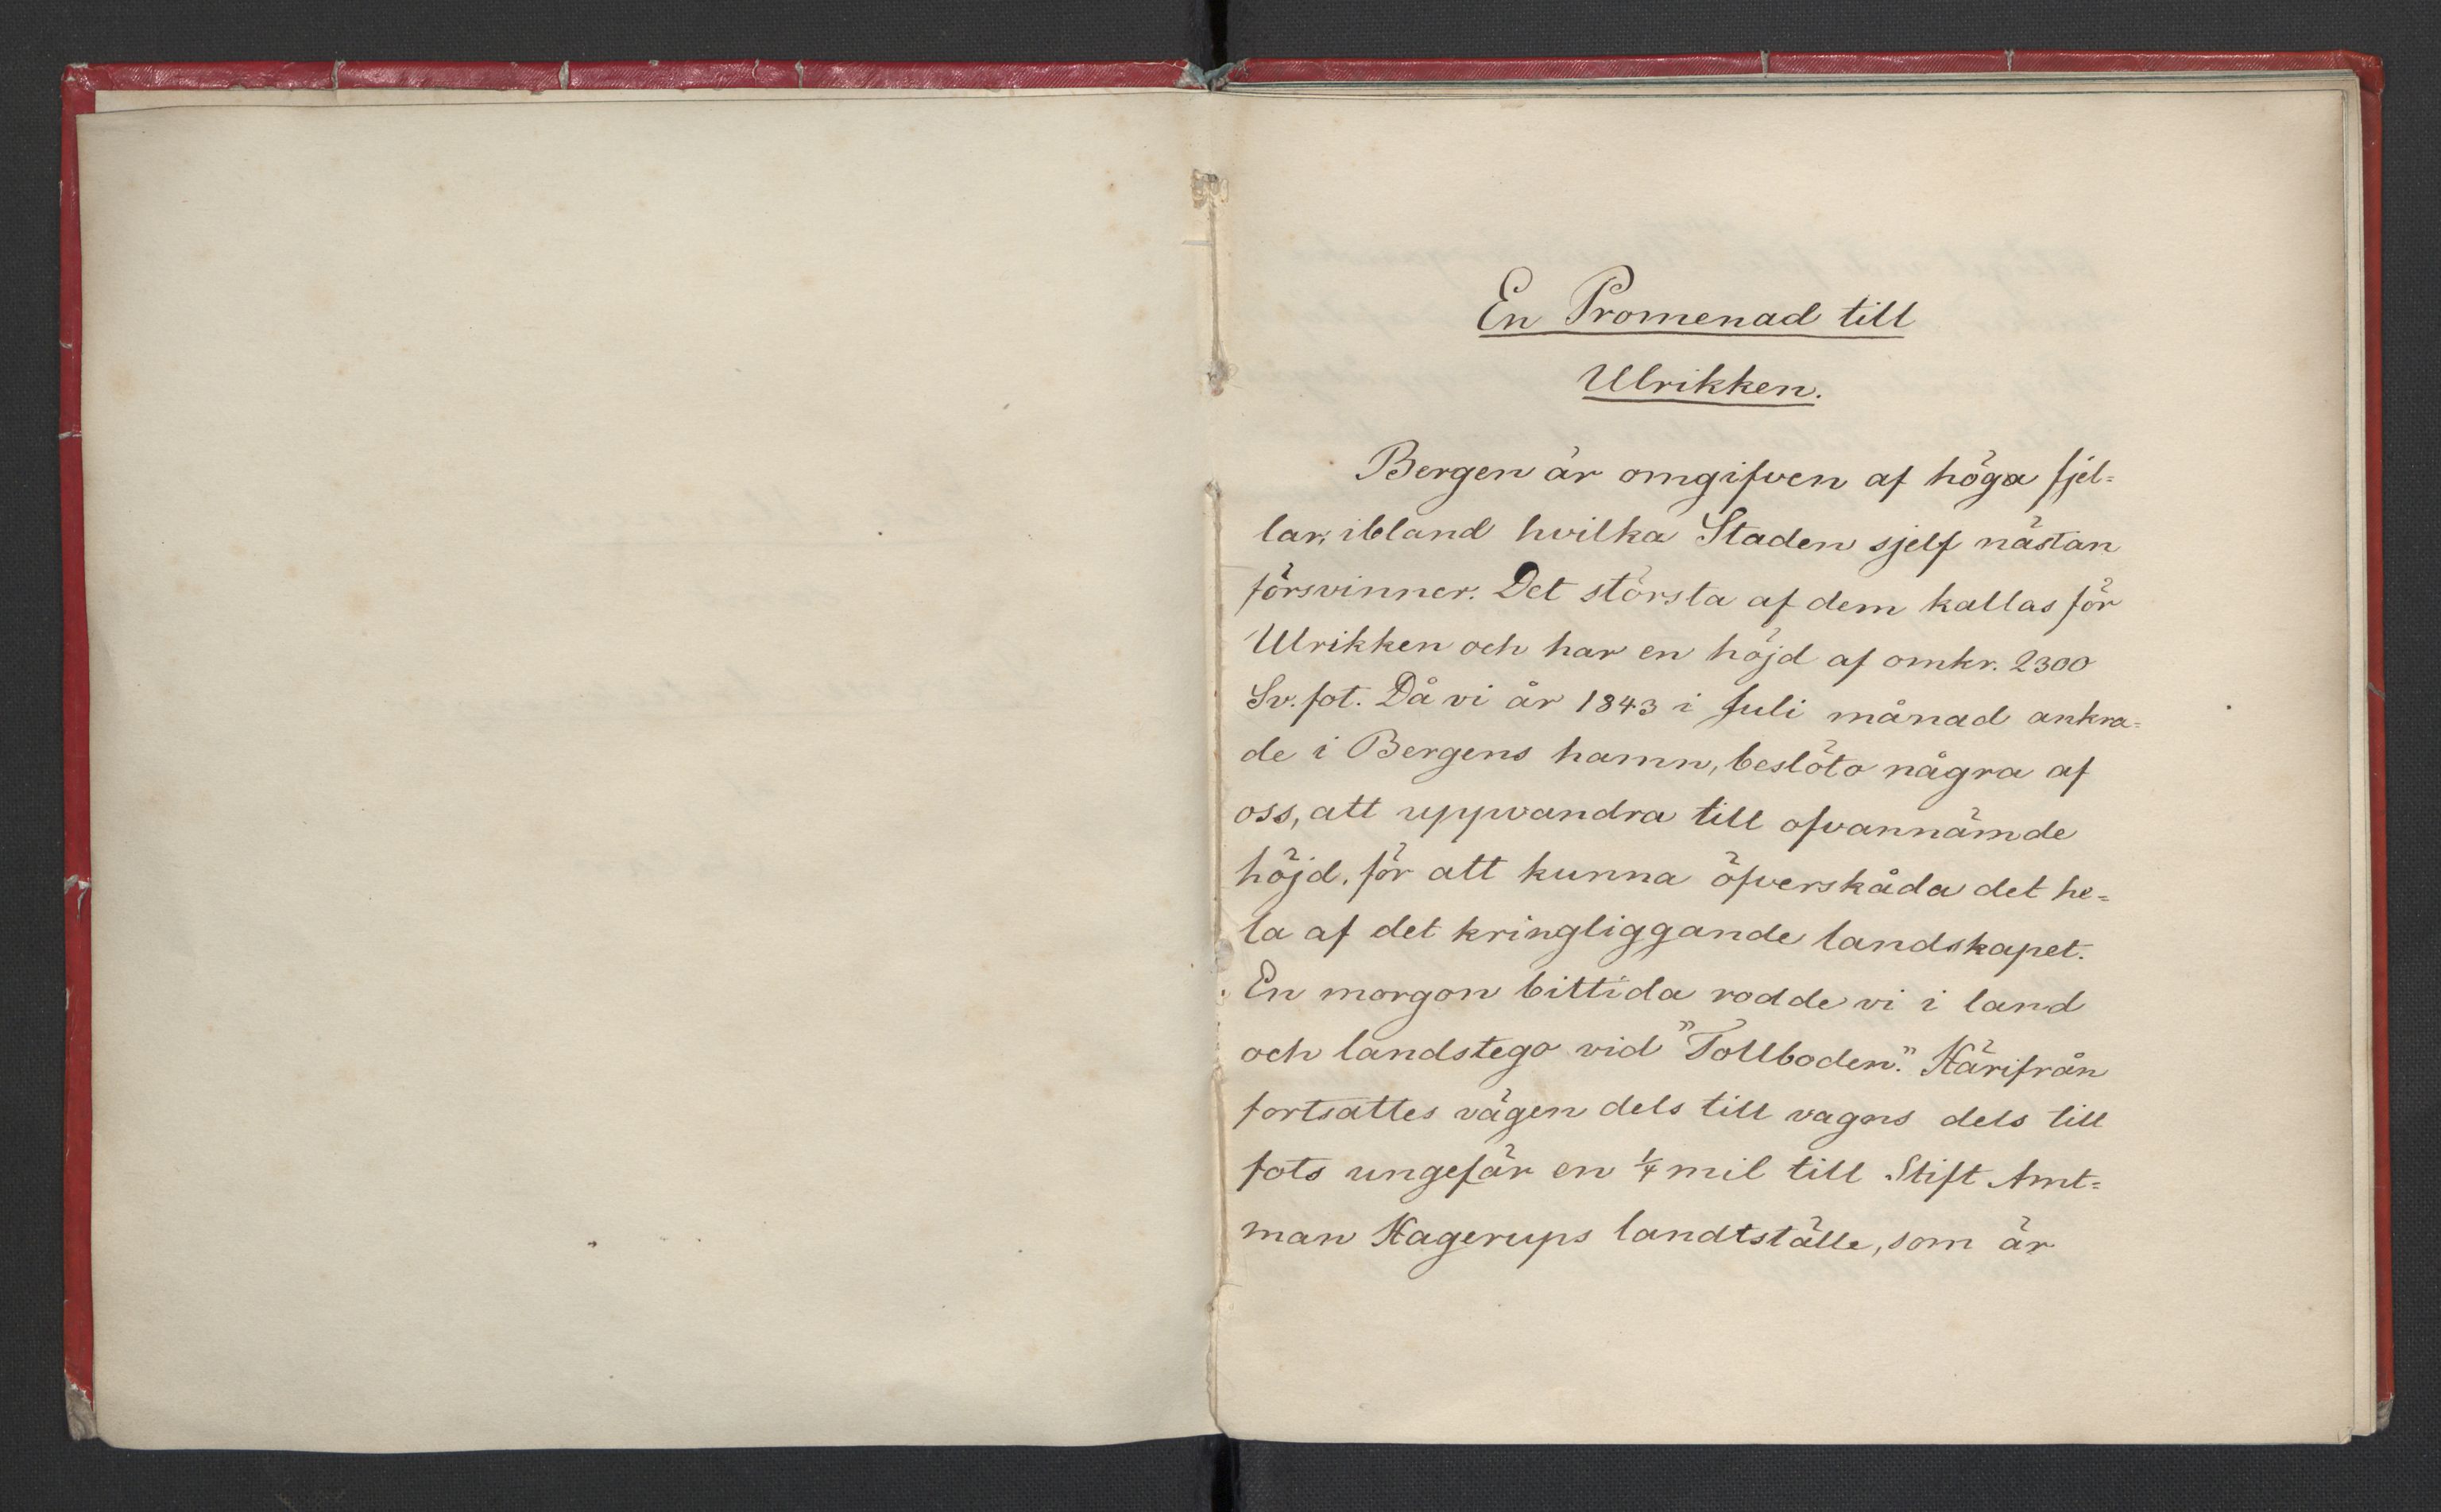 En Promenad till
Ulrikken.
Bergen är omgifven af höga fjel=
lar, ibland hvilka Staden sjelf nästan
försvinner. Det största af dem kallas för
Ulrikken och har en höjd af omkr. 2300
Sv. fot. Då vi år 1843 i Juli månad ankra=
de i Bergens hamn, beslöto några af
oss, att uppvandra till ofvannämde
höjd, för att kunna öfverskåda det he=
la af det kringliggande landskapet.
En morgon bittida rodde vi i land
och landstego vid "Tollboden." Härifrån
fortsattes vägen dels till vagns dels till
fots ungefär en ¼ mil till Stift Amt=
man Hagerups landtställe, som är